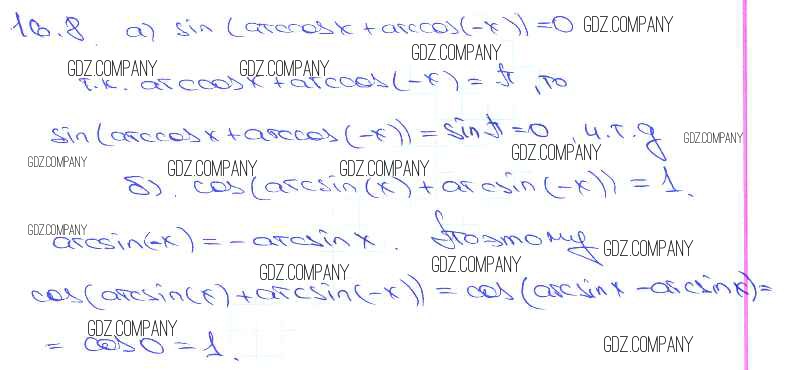 16.8 а) sin (arccosx + arccos(-x)) = 0 GDZ.COMPANY
GDZ.COMPANY GDZ.COMPANY GDZ.COMPANY
т.к. arccosx + arccos(-x) = π, то
sin(arccosx + arccos(-x)) = sin π = 0, ч.т.д GDZ.COMPANY
GDZ.COMPANY GDZ.COMPANY GDZ.COMPANY GDZ.COMPANY
б). cos(arcsin(x) + arcsin(-x)) = 1.
GDZ.COMPANY
arcsin(-x) = - arcsin x. Поэтому GDZ.COMPANY
GDZ.COMPANY GDZ.COMPANY
cos(arcsin(x) + arcsin(-x)) = cos(arcsinx - arcsinx) =
GDZ.COMPANY
= cos 0 = 1. GDZ.COMPANY